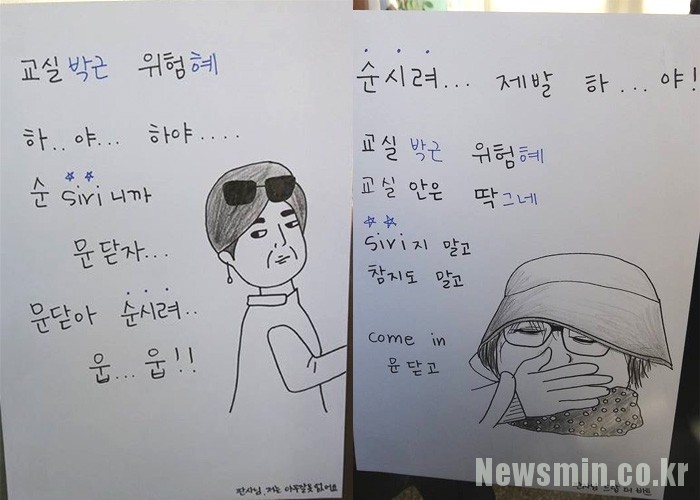 교실박근 위험혜
하..야... 하야.....
순 siri니까
문닫자...
문닫아 순시려..
웁...웁!!
판사님, 저는 아무잘못 없어요
순시려... 제발 하...야!
교실 박근 위험혜
교실 안은 딱그네
siri지 말고
참지도 말고
come in
문 닫고
Newsmin.co.kr